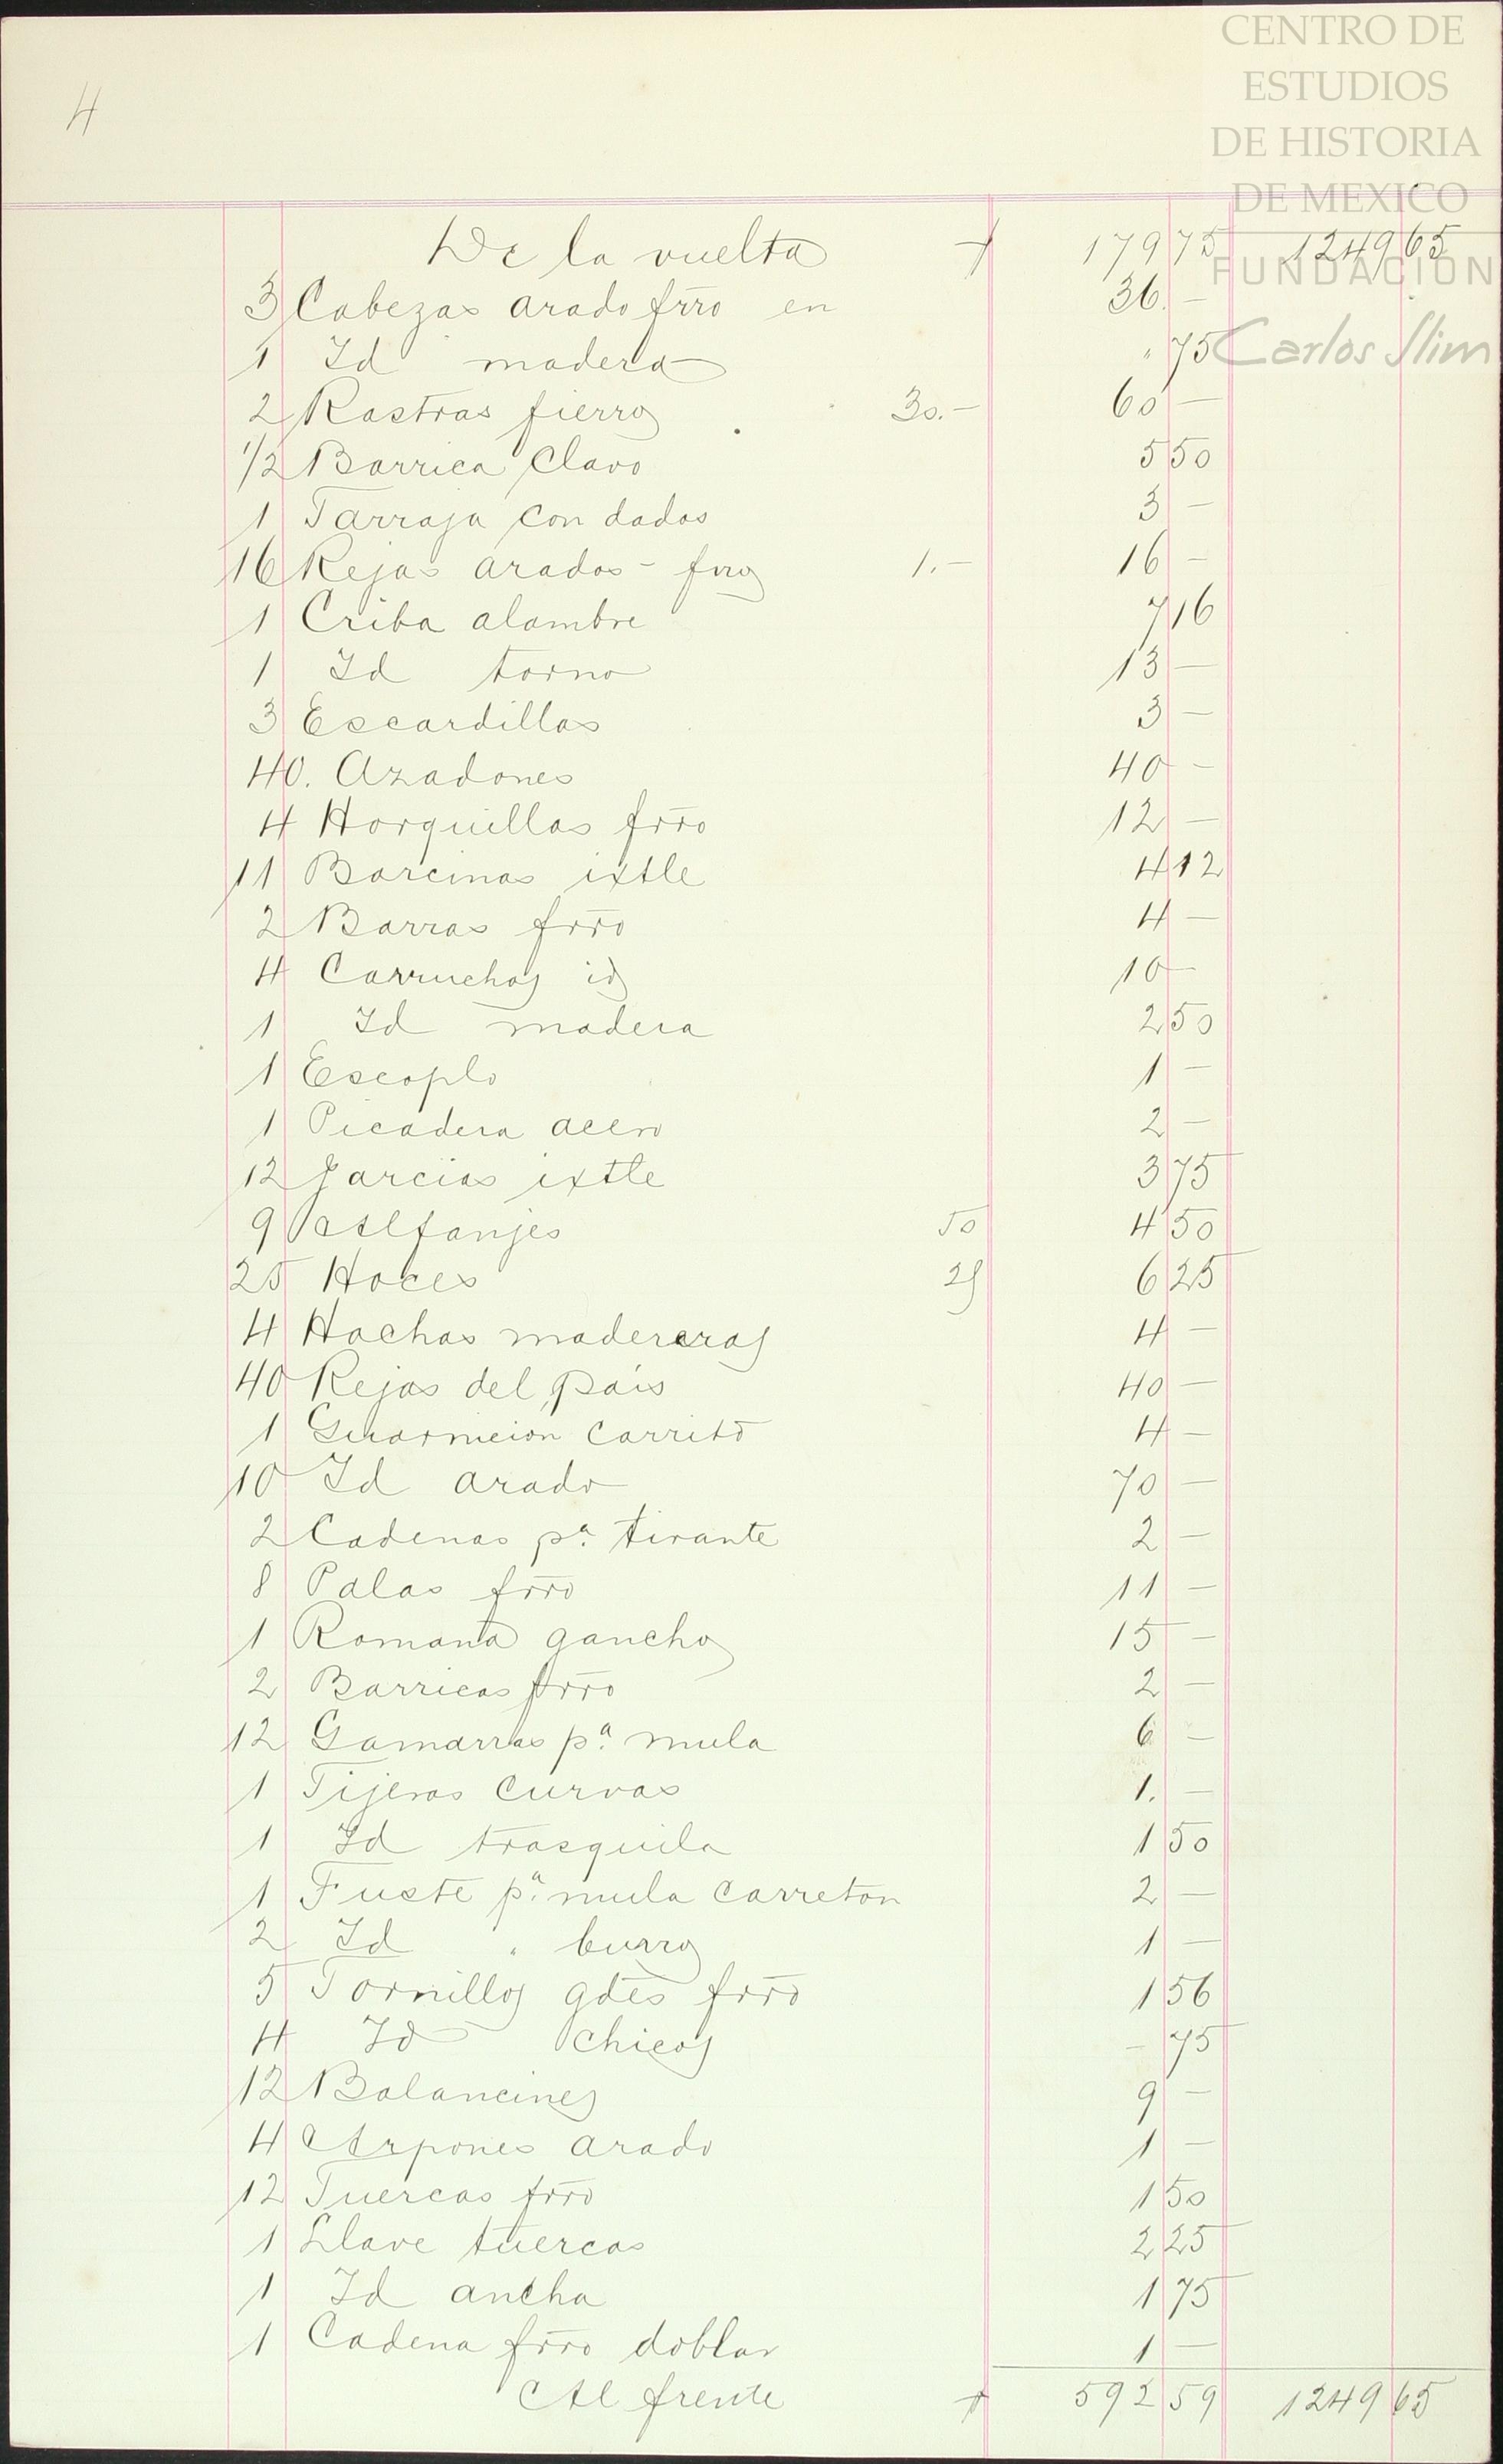 CENTRO DE
ESTUDIOS
DE HISTORIA
DE MEXICO
FUNDACION
Carlos Slim
4
De la vuelta 179 75 1249 65
3 Cabezas arado frro en 36. -
1 Id madera " 75
2 Rastras fierro 30.- 60 -
1/2 Barrica Clavo 5 50
1 Tarraja con dados 3 -
16 Rejas arados - frro 1.- 16 -
1 Criba alambre 7 16
1 Id torno 13 -
3 Escardillas 3 -
40. Azadones 40 -
4 Horquillas frro 12 -
11 Barcinas ixtle 4 12
2 Barras frro 4 -
4 Carruchas id 10 -
1 Id madera 2 50
1 Escoplo 1 -
1 Picadera acero 2 -
12 Jarcias ixtle 3 75
9 Alfanjes 50 4 50
25 Hoces 25 6 25
4 Hachas madereras 4 -
40 Rejas del pais 40 -
1 Guarnicion Carrito 4 -
10 Id arado 70 -
2 Cadenas pa. tirante 2 -
8 Palas frro 11 -
1 Romana gancho 15 -
2 Barricas frro 2 -
12 Gamarras pa. mula 6 -
1 Tijeras Curvas 1. -
1 Id trasquila 1 50
1 Fuste pa. mula Carreton 2 -
2 Id " burro 1 -
5 Tornillos gdes frro 1 56
4 Id Chicos - 75
12 Balancines 9 -
4 Arpones arado 1 -
12 Tuercas frro 1 50
1 Llave tuercas 2 25
1 Id ancha 1 75
1 Cadena frro doblar 1 -
Al frente 592 59 1249 65